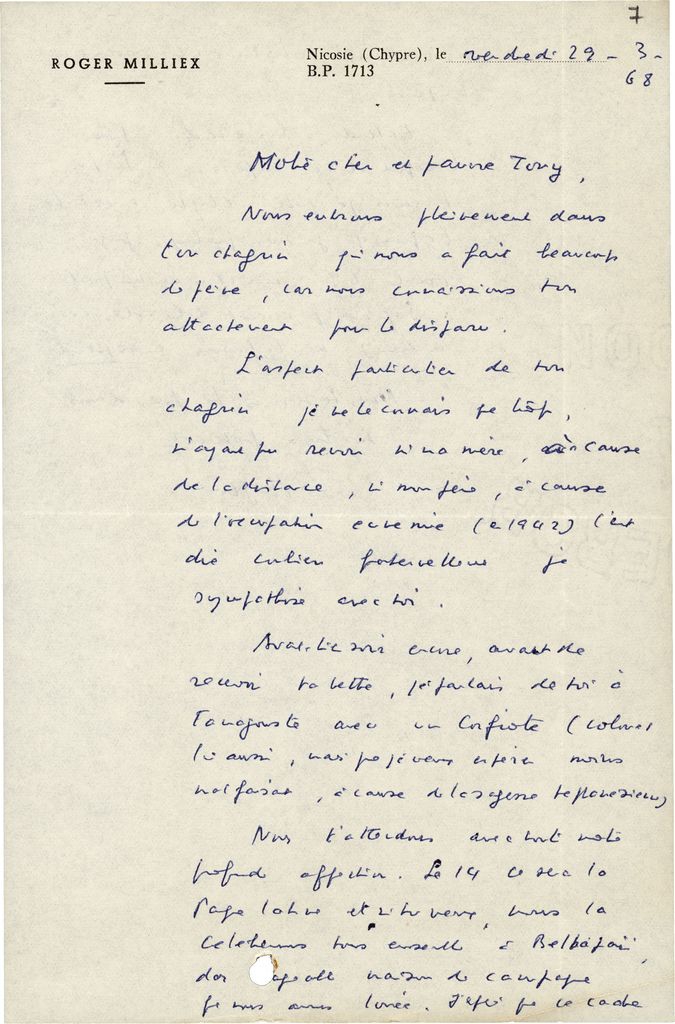 7
ROGER MILLIEX
Nicosie (Chypre), le vendredi 29 - 3 -
68
B.P. 1713
Notre cher et pauvre Tony,
Nous entrons pleinement dans
ton chagrin qui nous a fait beaucoup
de peine, car nous connaissions ton
attachement pour le disparu.
L'aspect particulier de ton
chagrin je ne le connais que trop,
n'ayant pu revoir ni ma mère, à cause
de la distance, ni mon père, à cause
de l'occupation ennemie (en 1942) c'est
dire combien fraternellement je
sympathise avec toi.
Avant-hier soir encore, avant de
recevoir ta lettre, je parlais de toi à
Famagouste avec un Corfiote (colonel
lui aussi, mais que je veux espérer moins
malfaisant, à cause de la sagesse heptanésienne)
Nous t'attendons avec toute notre
profonde affection. Le 14 ce sera la
Pâque latine et si tu veux, nous la
célèbrerons tous ensemble à Bellapaïs,
maison de campagne
que nous avons louée. J'espère que ce cadre